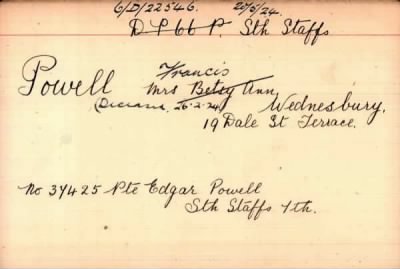 6/D/22546. 20/5/24.
D P 66 P. Sth Staffs
Francis
Powell Mrs Betsy Ann,
(Deceased, 26.2.24) Wednesbury.
19 Dale St Terrace.
No 37425 Pte Edgar Powell
Sth Staffs 7th.